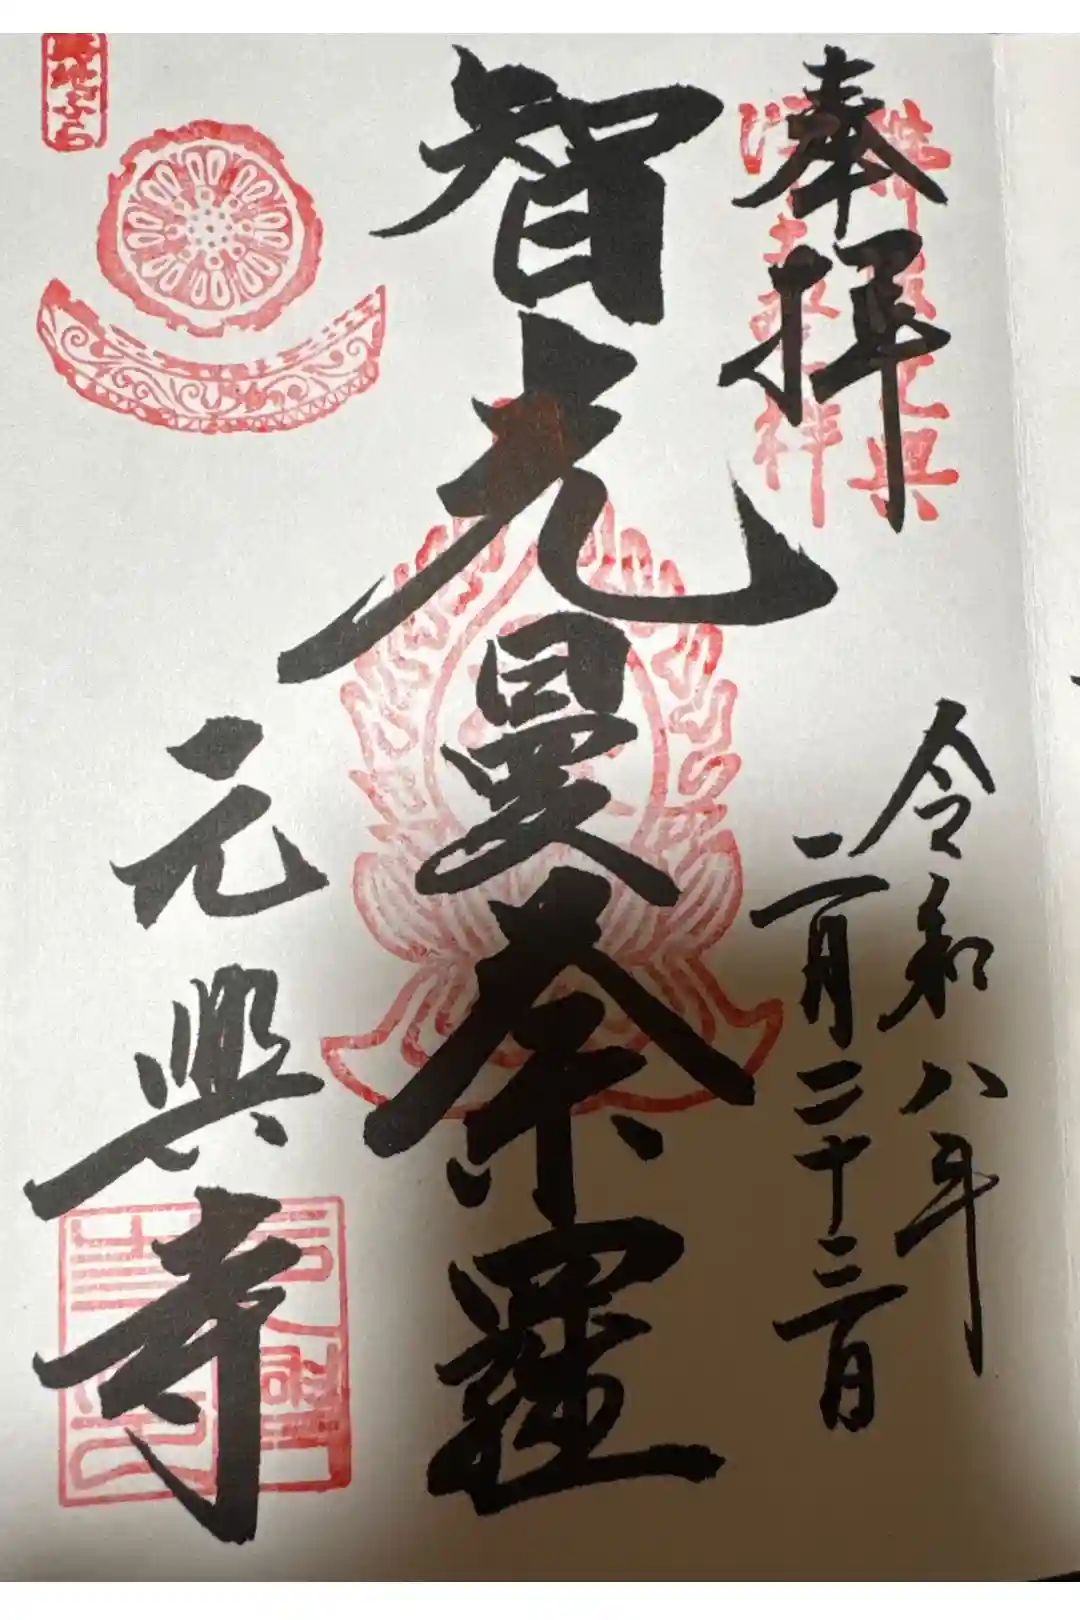 奉拝
令和八年
二月二十三日
智光曼荼羅
元興寺